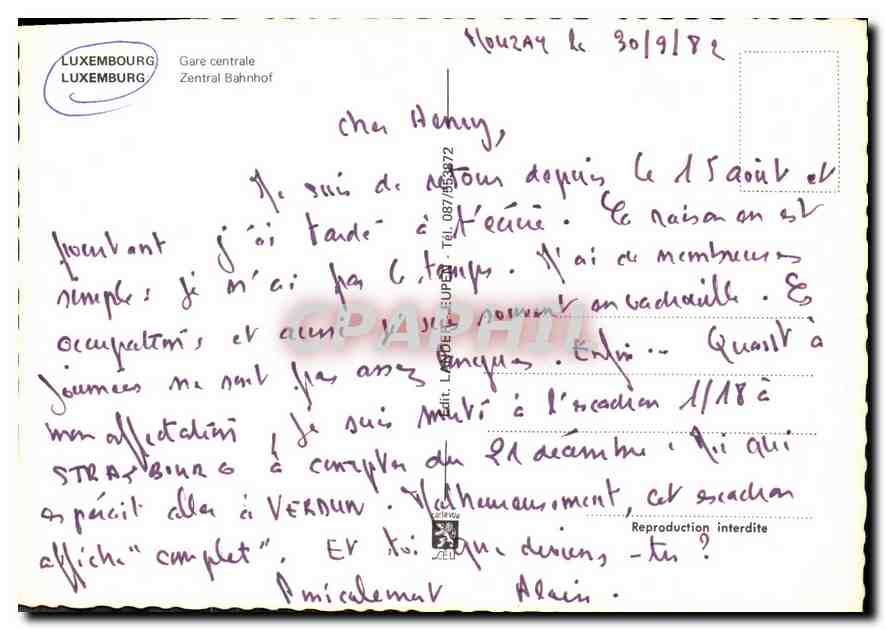 LUXEMBOURG Gare centrale
LUXEMBURG Zentral Bahnhof
Mouzay le 30/9/82
Cher Henry,
Je suis de retour depuis le 15 août et
pourtant j'ai tardé à t'écrire. La raison en est
simple: je n'ai pas le temps. J'ai de nombreuses
occupations et aussi je suis souvent en vadrouille. Les
journées ne sont pas assez longues. Enfin... Quant à
mon affectation, je suis muté à l'escadron 1/18 à
STRASBOURG à compter du 21 décembre. Moi qui
espérait aller à VERDUN. Malheureusement, cet escadron
affiche "complet". Et toi que deviens-tu?
Amicalement Alain.
Edit. LANDER EUPEN - Tél. 087/553872
CPAPHIL
Reproduction interdite